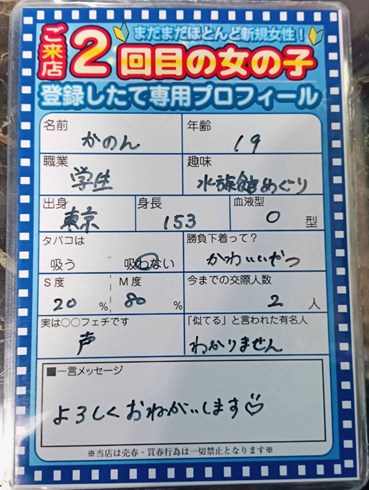 まだまだほとんど新規女性！
ご来店2回目の女の子
登録したて専用プロフィール
名前 年齢
かのん 19
職業 趣味
学生 水族館めぐり
出身 身長 血液型
東京 153 O型
タバコは 勝負下着って？
吸う 吸わない かわいいやつ
S度 M度 今までの交際人数
20% 80% 2人
実は○○フェチです 「似てる」と言われた有名人
声 わかりません
■一言メッセージ
よろしくおねがいします
※当店は売春・買春行為は一切禁止となります※